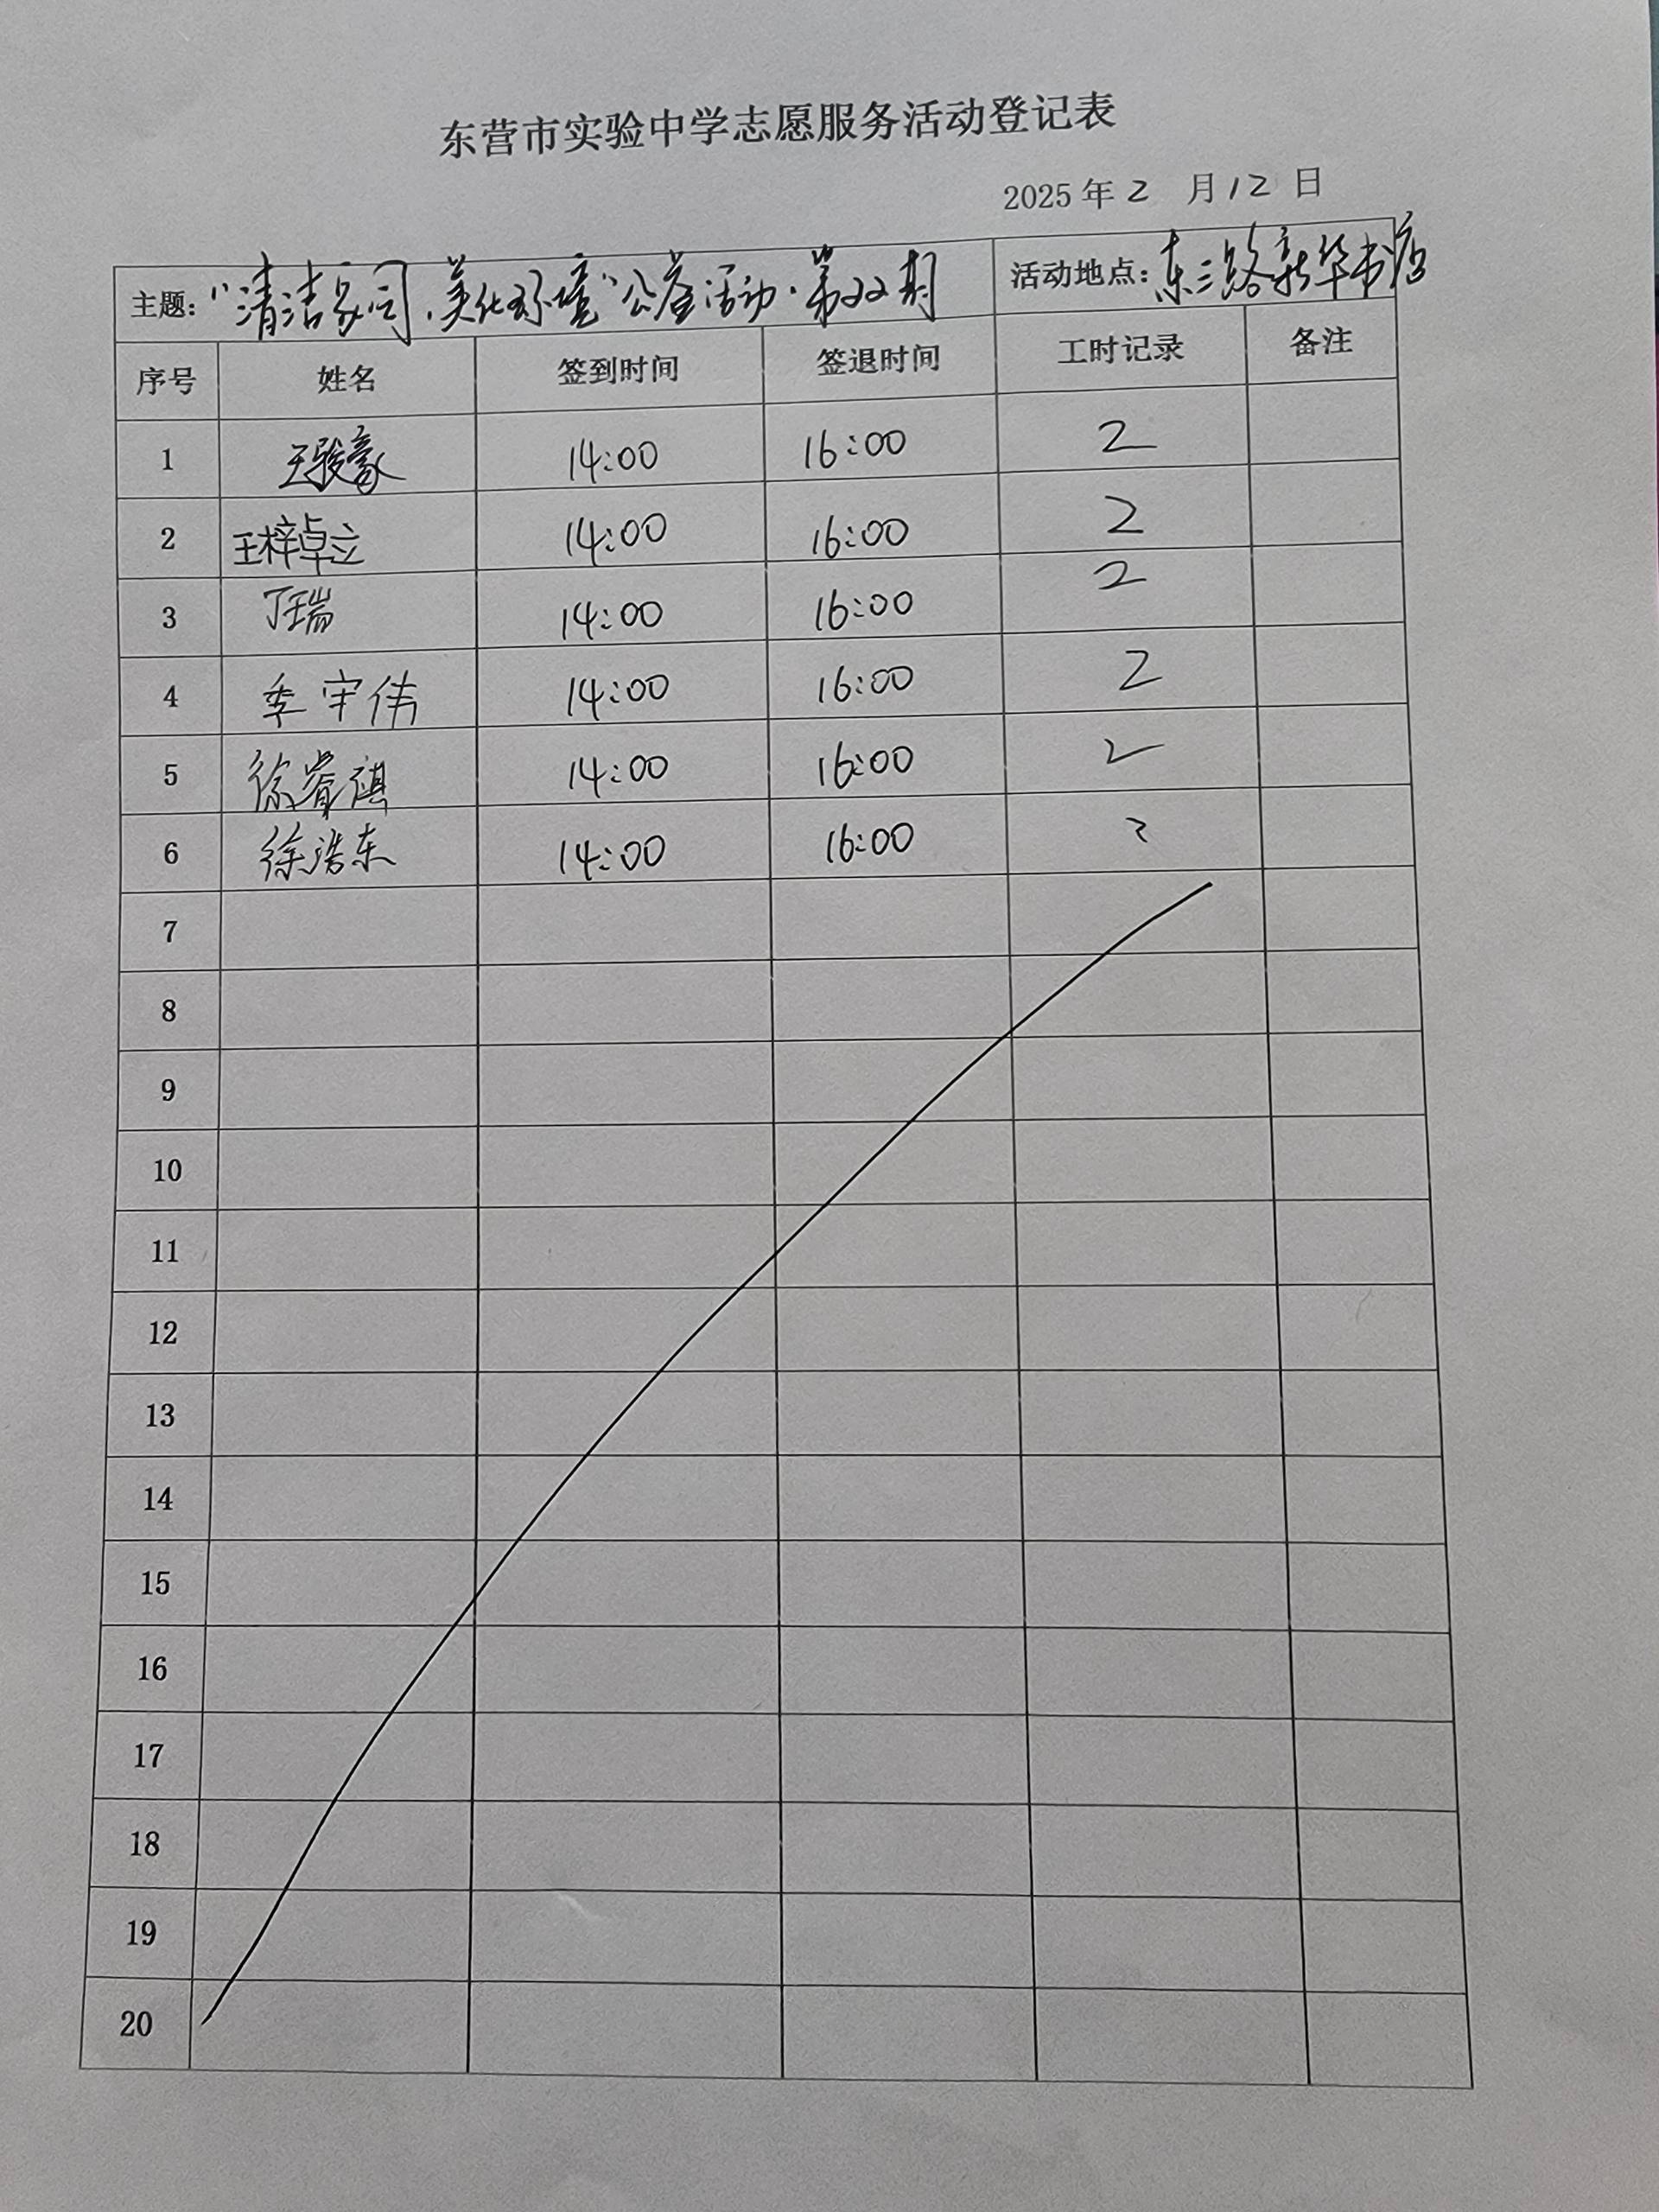 东营市实验中学志愿服务活动登记表
2025 年 2 月 12 日
主题：“清洁家园，美化环境”公益活动·第22期 活动地点：东三路新华书店
序号 姓名 签到时间 签退时间 工时记录 备注
1 王骏豪 14:00 16:00 2
2 王梓卓立 14:00 16:00 2
3 丁瑞 14:00 16:00 2
4 季宇伟 14:00 16:00 2
5 徐睿祺 14:00 16:00 2
6 徐浩东 14:00 16:00 2
7
8
9
10
11
12
13
14
15
16
17
18
19
20